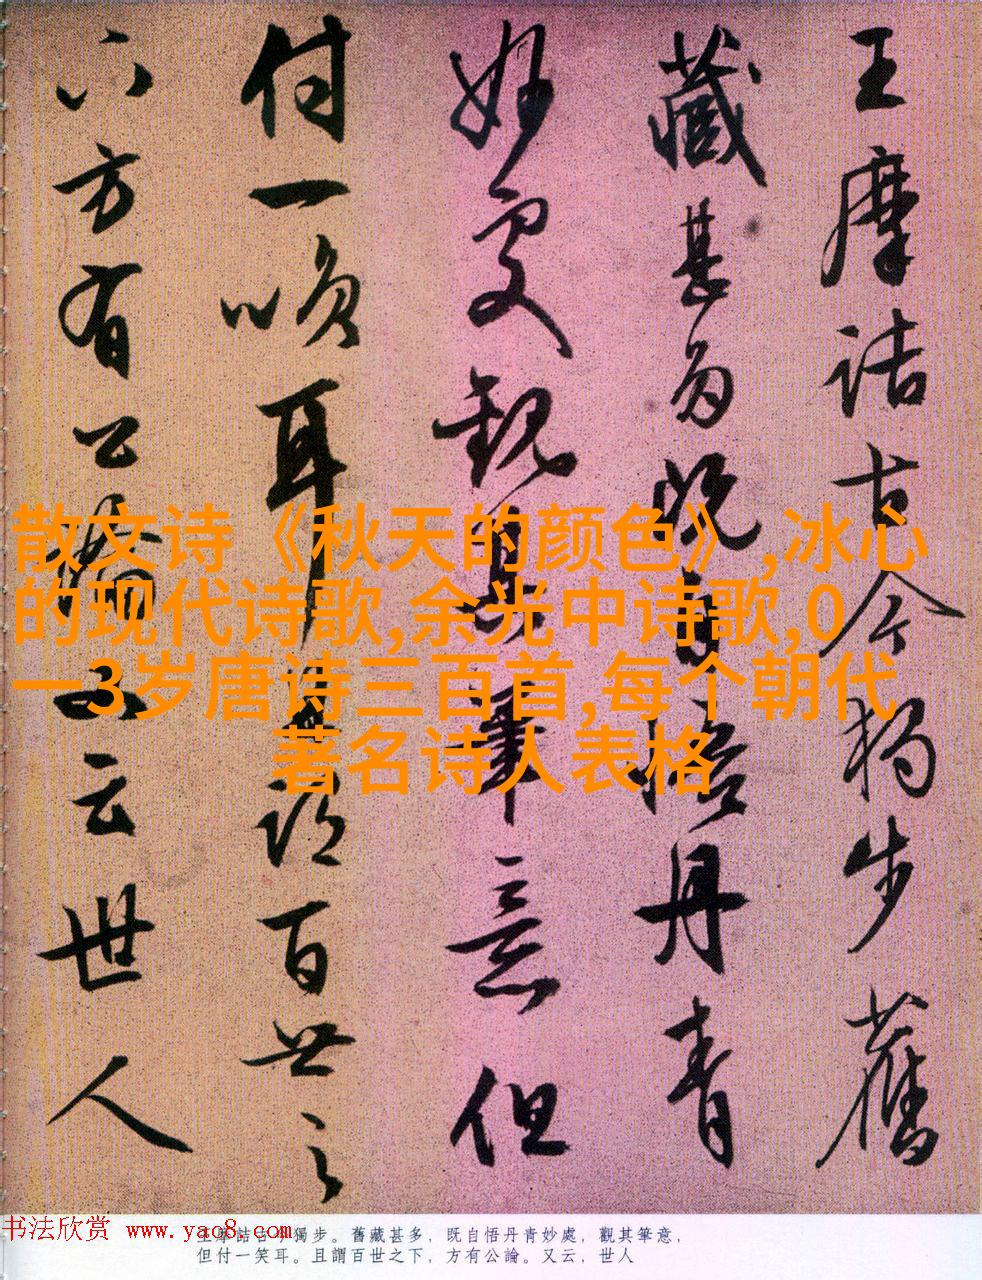 王摩詰古今獨步舊
藏甚多既自悟丹青
妙處觀其筆意但
付一咲耳且謂百世之
下方有公論又云世人
散文诗《秋天的颜色》,冰心
的现代诗歌,余光中诗歌,0
一3岁唐诗三百首,每个朝代
著名诗人表格
书法欣赏 www.yac8.com
王摩詰古今獨步。舊藏甚多，既自悟丹青妙處，觀其筆意，
但付一笑耳。且謂百世之下，方有公論。又云，世人